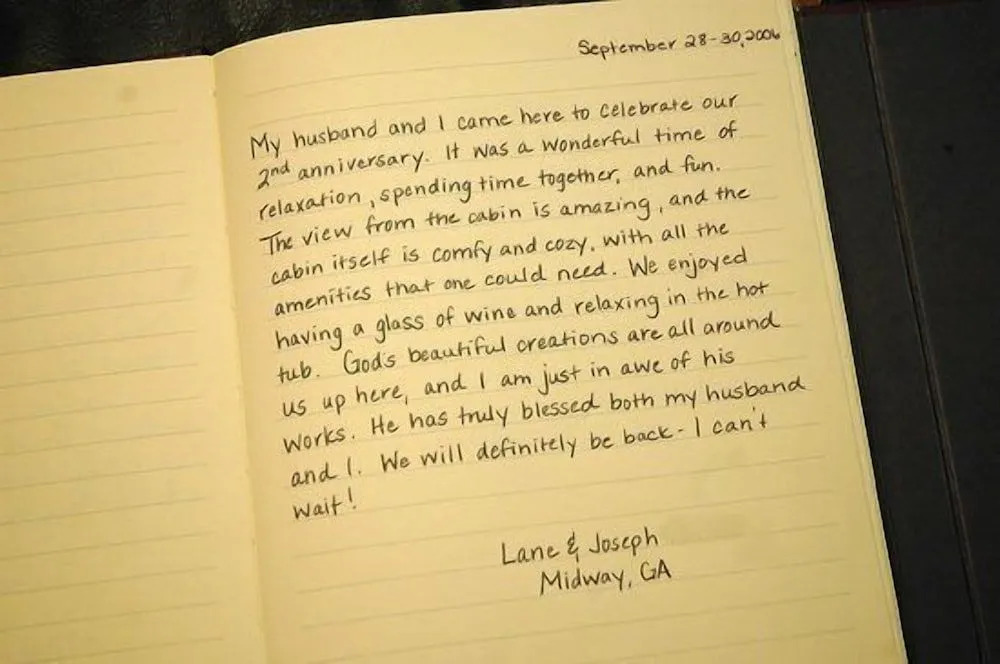 September 28-30, 2006
My husband and I came here to celebrate our
2nd anniversary. It was a wonderful time of
relaxation, spending time together, and fun.
The view from the cabin is amazing, and the
cabin itself is comfy and cozy, with all the
amenities that one could need. We enjoyed
having a glass of wine and relaxing in the hot
tub. God's beautiful creations are all around
us up here, and I am just in awe of his
works. He has truly blessed both my husband
and I. We will definitely be back - I can't
wait!
Lane & Joseph
Midway, GA